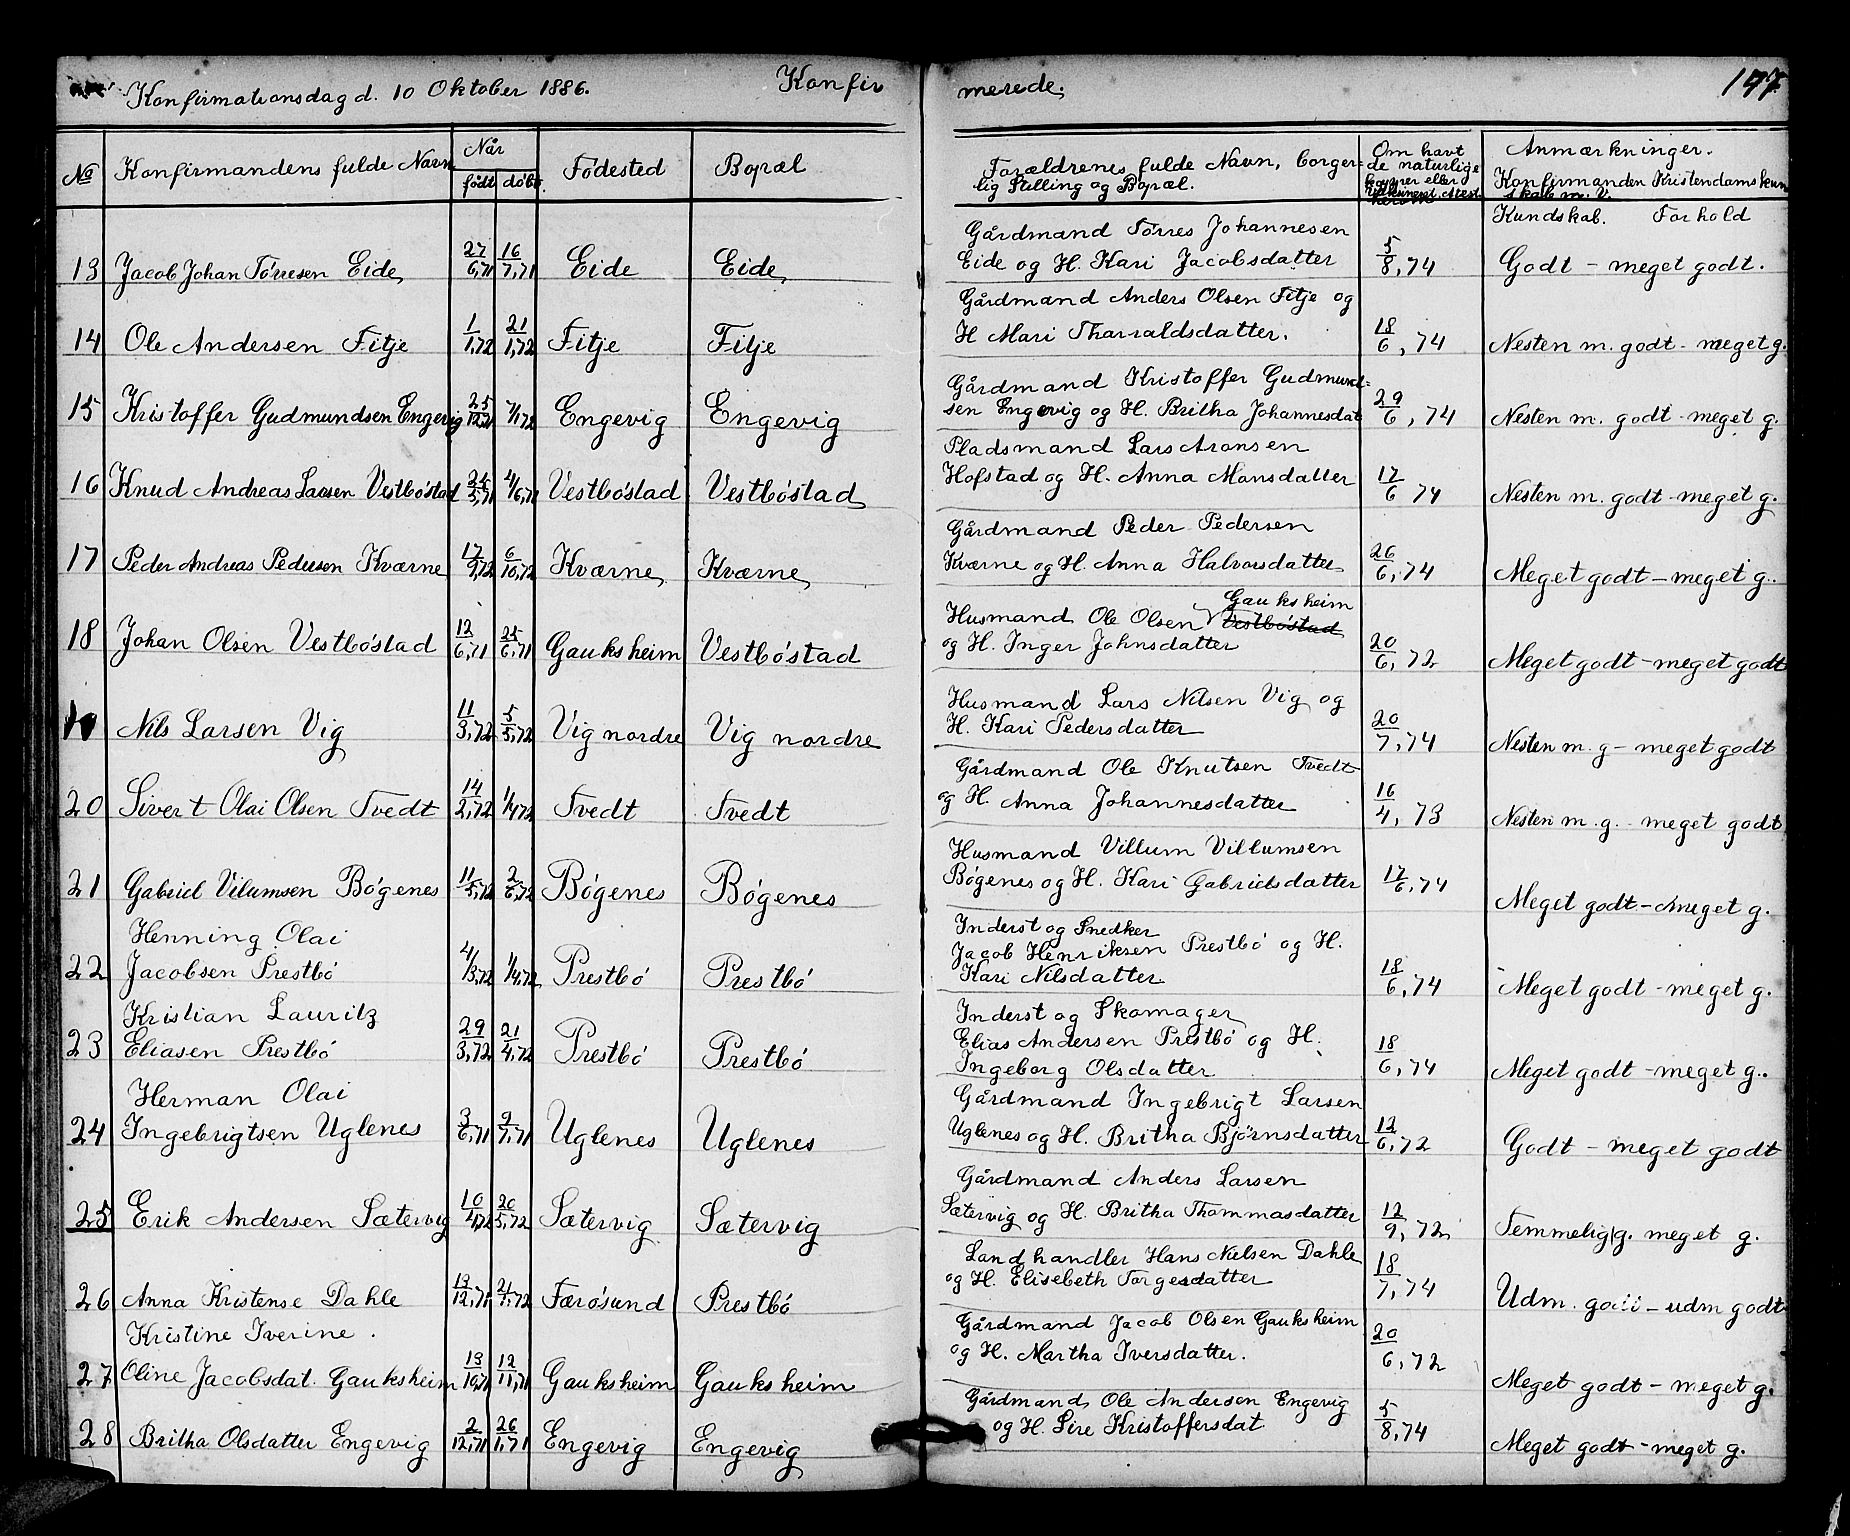 Konfirmationsdag d. 10 Oktober 1886. Konfir merede. 147
No Konfirmandens fulde Navn Når født døbt. Fødested Bopæl Forældrenes fulde Navn, borger=
lig Stilling og Bopæl. Om havt
de naturlige
kopper eller
Anmærkninger.
Konfirmanden Kristendomskun
skab m. V.
Kundskab. Forhold
13 Jacob Johan Tørresen Eide 27/6,71 16/7,71 Eide Eide Gårdmand Tørres Johannesen
Eide og H. Kari Jacobsdatter 5/8,74 Godt - meget godt.
14 Ole Andersen Fitje 1/1,72 21/1,72 Fitje Fitje Gårdmand Anders Olsen Fitje og
H Mari Tharraldsdatter. 18/6,74 Nesten m. godt - meget g.
15 Kristoffer Gudmundsen Engevig 25/12,71 7/1 72 Engevig Engevig Gårdmand Kristoffer Gudmund=
sen Engevig og H. Britha Johannesdat 29/6,74 Nesten m. godt - meget g.
16 Knud Andreas Larsen Vestbøstad 25/5,71 4/6,71 Vestbøstad Vestbøstad Pladsmand Lars Aronsen
Hofstad og H. Anna Monsdatter 17/6 74 Nesten m. godt - meget g.
17 Peder Andreas Pedersen Kværne 17/9,72 6/10,72 Kværne Kværne Gårdmand Peder Pedersen
Kværne og H. Anna Halvorsdatter 26/6,74 Meget godt - meget g.
18 Johan Olsen Vestbøstad 12/6,71 25/6,71 Gauksheim Vestbøstad Gauksheim
Husmand Ole Olsen Vestbøstad
og H. Inger Johnsdatter 20/6,72 Meget godt - meget godt
19 Nils Larsen Vig 11/3,72 5/5,72 Vig nordre Vig nordre Husmand Lars Nilsen Vig og
H. Kari Pedersdatter 20/7,74 Nesten m. g - meget godt
20 Sivert Olai Olsen Tvedt 14/2,72 1/4 72 Tvedt Tvedt Gårdmand Ole Knutsen Tvedt
og H. Anna Johannesdatter 16/4,73 Nesten m. g. - meget godt
21 Gabriel Vilumsen Bøgenes 11/5,72 2/6,72 Bøgenes Bøgenes Husmand Villum Villumsen
Bøgenes og H. Kari Gabrielsdatter 17/6,74 Meget godt - meget g.
22 Henning Olai
Jacobsen Prestbø 4/3,72 1/4,72 Prestbø Prestbø Inderst og Snedker
Jacob Henriksen Prestbø og H.
Kari Nilsdatter 18/6,74 Meget godt - meget g.
23 Kristian Lauritz
Eliasen Prestbø 29/3,72 21/4,72 Prestbø Prestbø Inderst og Skomager
Elias Andersen Prestbø og H.
Ingeborg Olsdatter 18/6,74 Meget godt - meget g.
24 Herman Olai
Ingebrigtsen Uglenes 3/6,71 9/7,71 Uglenes Uglenes Gårdmand Ingebrigt Larsen
Uglenes og H. Britha Bjørnsdatter 12/6,72 Godt - meget godt
25 Erik Andersen Sætervig 10/4,72 20/5,72 Sætervig Sætervig Gårdmand Anders Larsen
Sætervig og H. Britha Thommasdatter 12/9,72 Temmelig g. meget g.
26 Anna Kristense Dahle 13/12,71 21/1,72 Færøsund Prestbø Landhandler Hans Nielsen Dahle
og H. Elisebeth Torgesdatter 18/7,74 Udm. godt - udm godt
27 Kristine Iverine
Oline Jacobsdat. Gauksheim 13/10,71 12/11,71 Gauksheim Gauksheim Gårdmand Jacob Olsen Gauksheim
og H. Martha Iversdatter. 20/6,72 Meget godt - meget g.
28 Britha Olsdatter Engevig 2/12,71 26/1,71 Engevig Engevig Gårdmand Ole Andersen Engevig
og H. Sire Kristoffersdat 5/8,74 Meget godt - meget g.